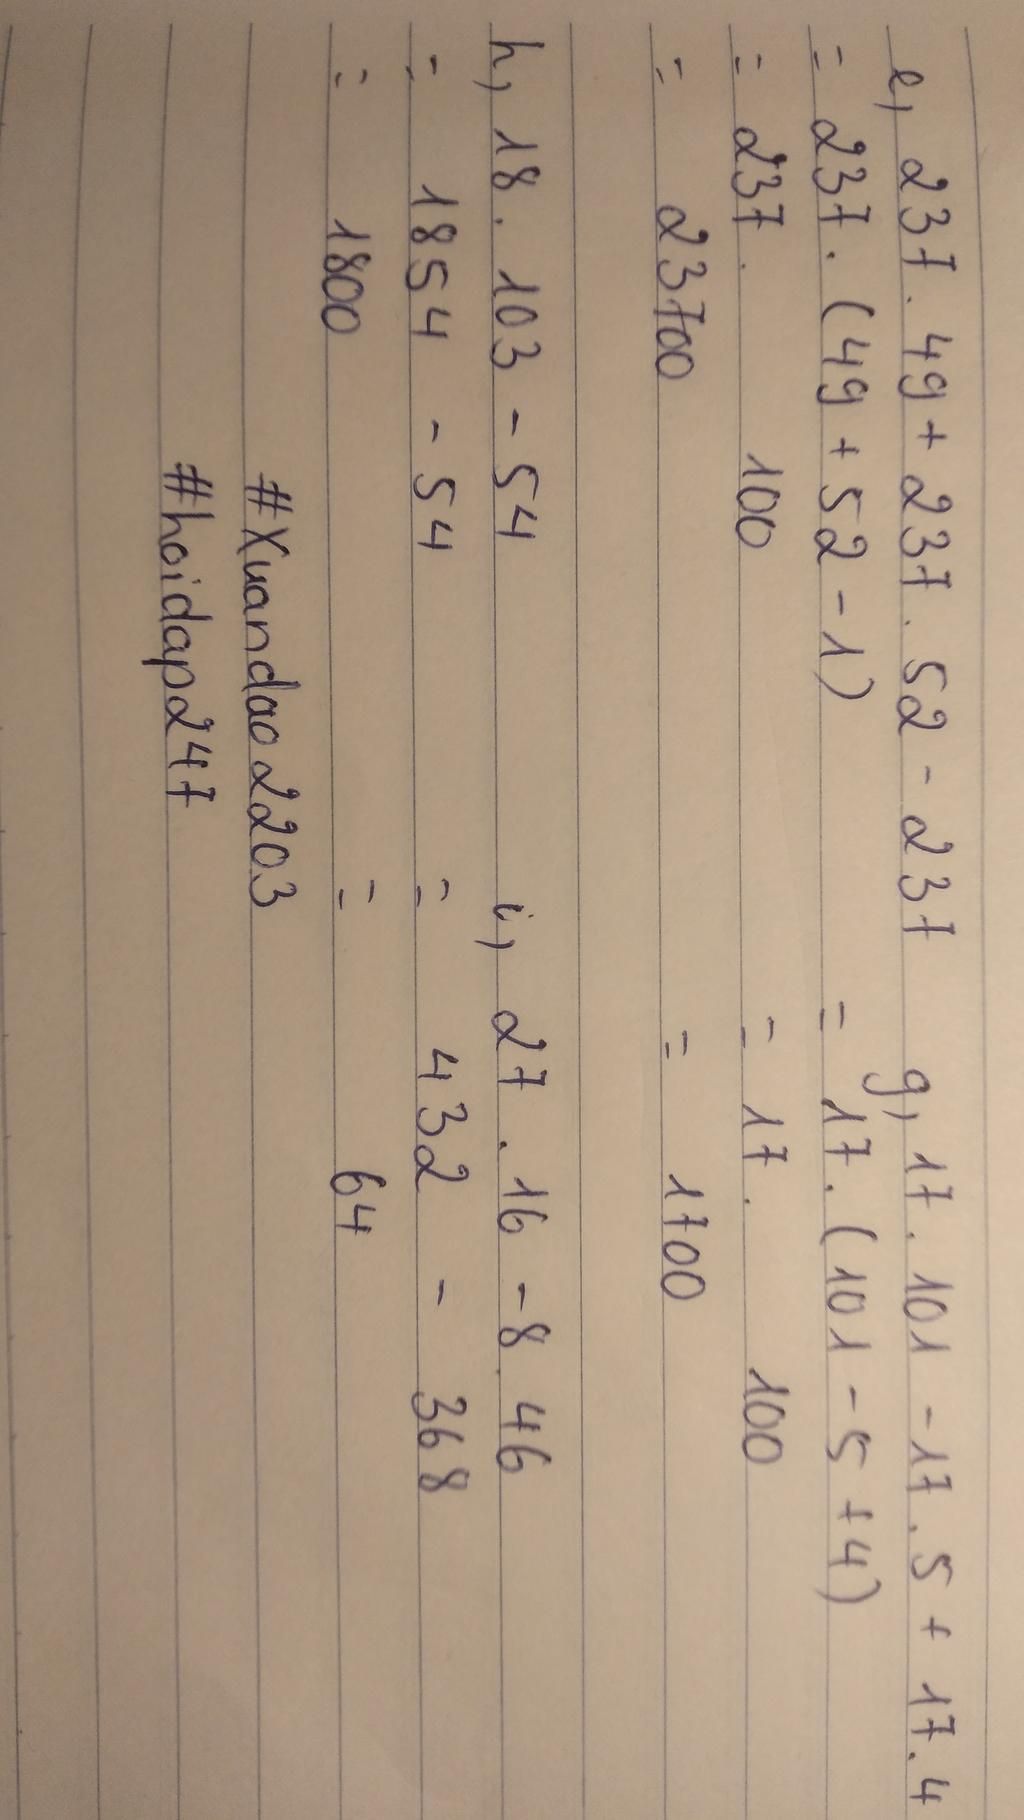 e, 237. 49 + 237. 52 - 237
= 237. (49 + 52 - 1)
= 237. 100
= 23700
g, 17. 101 - 17. 5 + 17. 4
= 17. (101 - 5 + 4)
= 17. 100
= 1700
h, 18. 103 - 54
= 1854 - 54
= 1800
i, 27. 16 - 8. 46
= 432 - 368
= 64
#Xuandao2203
#hoidap247